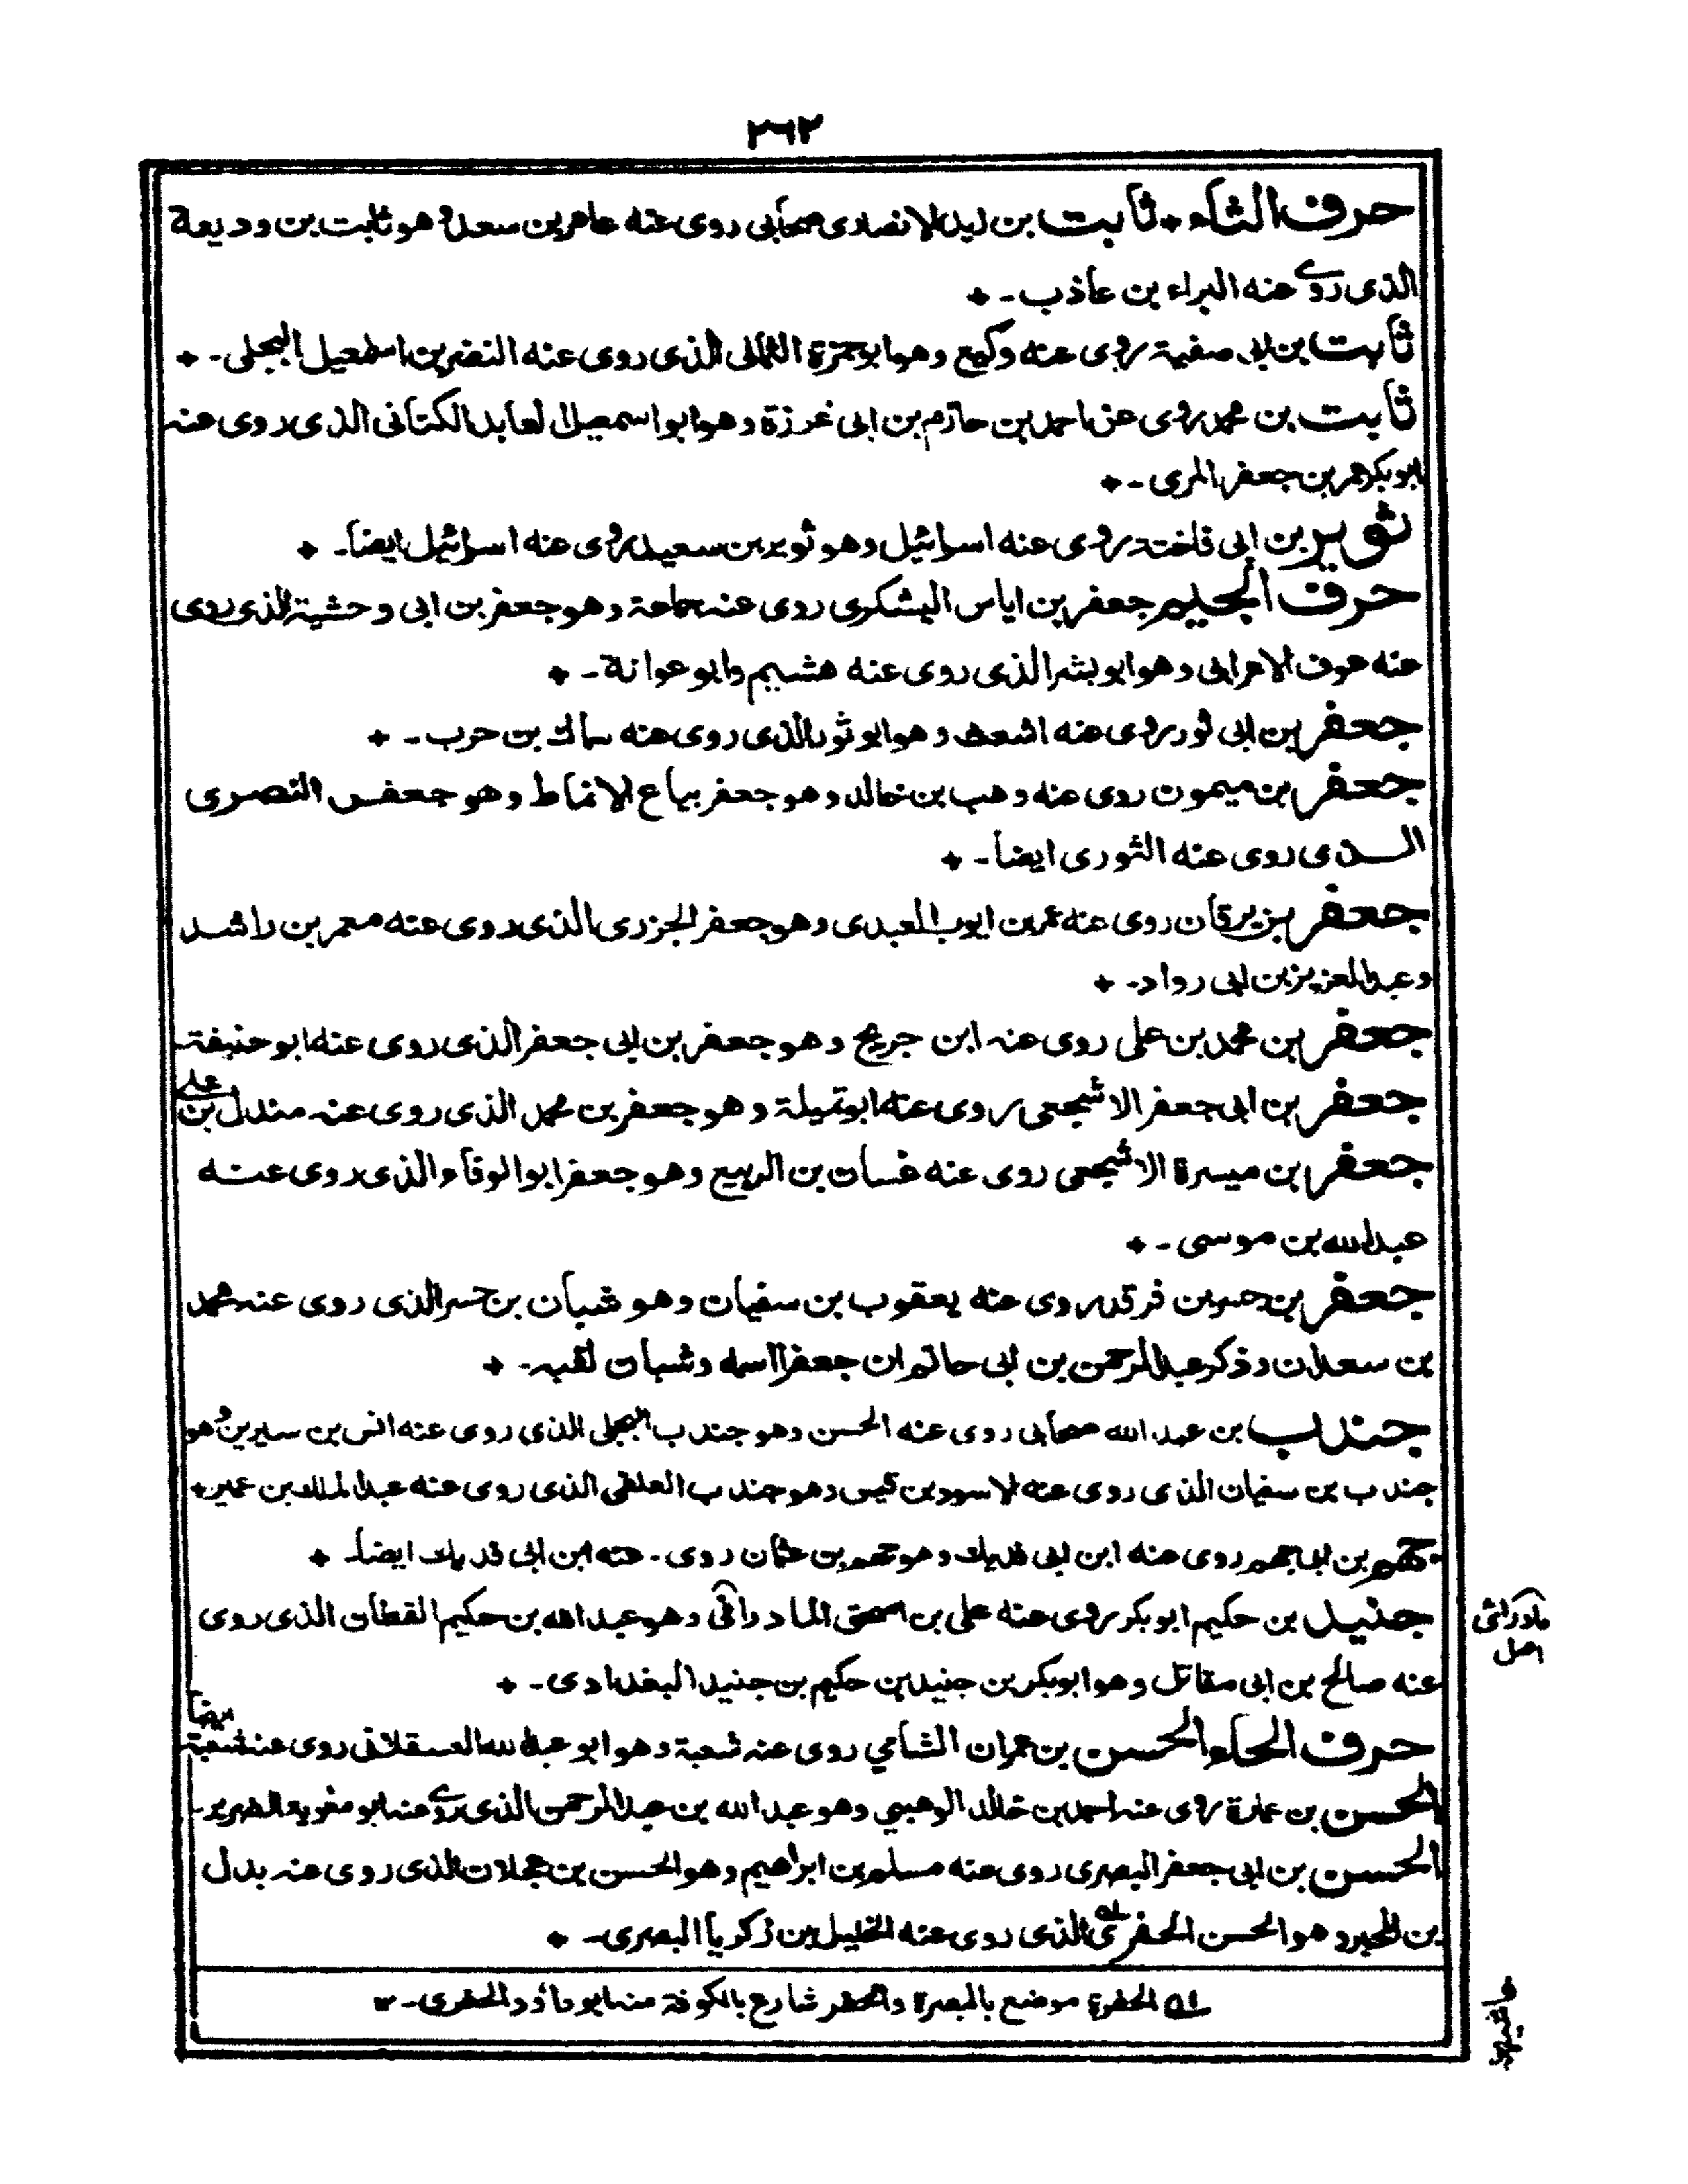 ٢٦٢
حرف الثاء ٭ ثابت بن يزيد الانصارى صحابى روى عنه عامر بن سعد و هو ثابت بن وديعة
الذى روى عنه البراء بن عاذب ـ ٭
ثابت بن ابى صفية روى عنه وكيع وهو ابو حمزة الثمالى الذى روى عنه النضر بن اسمعيل البجلى ـ ٭
ثابت بن محمد روى عنه احمد بن حازم بن ابى غرزة وهو ابو اسمعيل العابد الكنانى الذى روى عنه
ابو بكر عمر بن جعفر المزى ـ ٭
ثوير بن ابى فاخته روى عنه اسرائيل وهو ثوير بن سعيد روى عنه اسرائيل ايضاً ـ ٭
حرف الجيم جعفر بن اياس اليشكرى روى عنه جماعة وهو جعفر بن ابى وحشية الذى روى
عنه عوف الاعرابى وهو ابو بشر الذى روى عنه هشيم وابو عوانة ـ ٭
جعفر بن ابى ثور روى عنه اشعث وهو ابو ثور الذى روى عنه سماك بن حرب ـ ٭
جعفر بن ميمون روى عنه وهب بن خالد وهو جعفر بياع الانماط وهو جعفر البصرى
الذى روى عنه الثورى ايضاً ـ ٭
جعفر بن برقان روى عنه عمر بن ايوب العبدى وهو جعفر الجزرى الذى روى عنه معمر بن راشد
وعبد العزيز بن ابى رواد ـ ٭
جعفر بن محمد بن على روى عنه ابن جريج وهو جعفر بن ابى جعفر الذى روى عنه ابو حنيفة ـ
جعفر بن ابى جعفر الاشجعى روى عنه ابو تميلة وهو جعفر بن محمد الذى روى عنه مندل بن على
جعفر بن ميسرة الاشجعى روى عنه غسان بن الربيع وهو جعفر ابو الوفاء الذى روى عنه
عبد الله بن موسى ـ ٭
جعفر بن جسر بن فرقد روى عنه يعقوب بن سفيان وهو شبان بن جسر الذى روى عنه محمد
بن سعدان وذكر عبد الرحمن بن ابى حاتم ان جعفرا اسمه وشبان لقبه ـ ٭
جندب بن عبد الله صحابى روى عنه الحسن وهو جندب البجلى الذى روى عنه انس بن سيرين وهو
جندب بن سفيان الذى روى عنه الاسود بن قيس وهو جندب العلقى الذى روى عنه عبد الملك بن عمير ٭
جهم بن ابى جهم روى عنه ابن ابى فديك وهو جهم بن عثمان روى ـ عنه ابن ابى فديك ايضاً ـ ٭
جنيد بن حكيم ابو بكر روى عنه على بن اسحق المادرائى وهو عبد الله بن حكيم القطان الذى روى
مادرائى
اصل
عنه صالح بن ابى مقاتل وهو ابو بكر بن جنيد بن حكيم بن جنيد البغدادى ـ ٭
حرف الحاء الحسن بن عمران الشامي روى عنه شعبة وهو ابو عبد الله العسقلانى روى عنه شعبة ايضاً
الحسن بن عمارة روى عنه احمد بن خالد الوهبي وهو عبد الله بن عبد الرحمن الذى روى عنه ابو معوية الضرير ـ
الحسن بن ابى جعفر البصرى روى عنه مسلم بن ابراهيم وهو الحسن بن عجلان الذى روى عنه بدل
بن المحبر وهو الحسن الحفرى الذى روى عنه الخليل بن زكريا البصرى ـ ٭
١ه الحفرة موضع بالبصرة والحفر شارع بالكوفة منه ابو داؤد الحفرى ـ ١٢